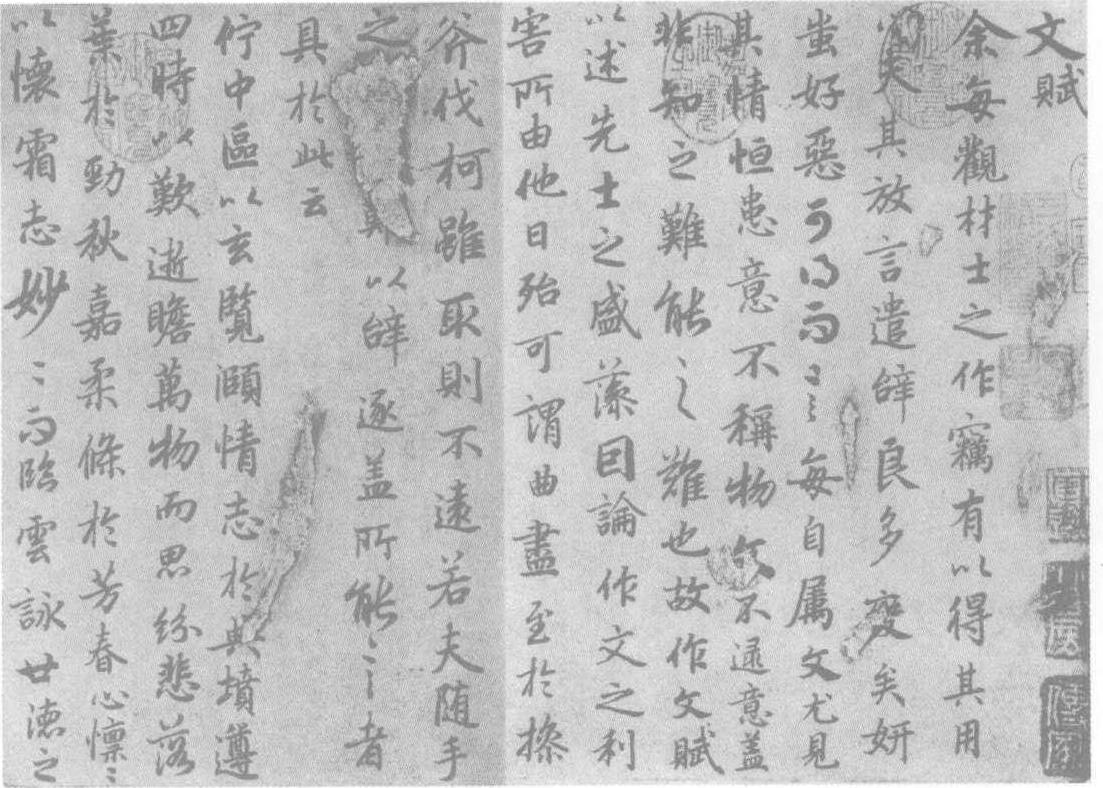 文賦
余每觀材士之作竊有以得其用
心夫其放言遣辭良多變矣妍
蚩好惡可得而言每自屬文尤見
其情恒患意不稱物文不逮意盖
非知之難能之難也故作文賦
以述先士之盛藻因論作文之利
害所由他日殆可謂曲盡至於操
斧伐柯雖取則不遠若夫随手
之難以辭逐盖所能言者
具於此云
佇中區以玄覽頤情志於典墳遵
四時以歎逝瞻萬物而思紛悲落
葉於勁秋嘉柔條於芳春心懍〻
以懷霜志妙〻而臨雲詠世德之